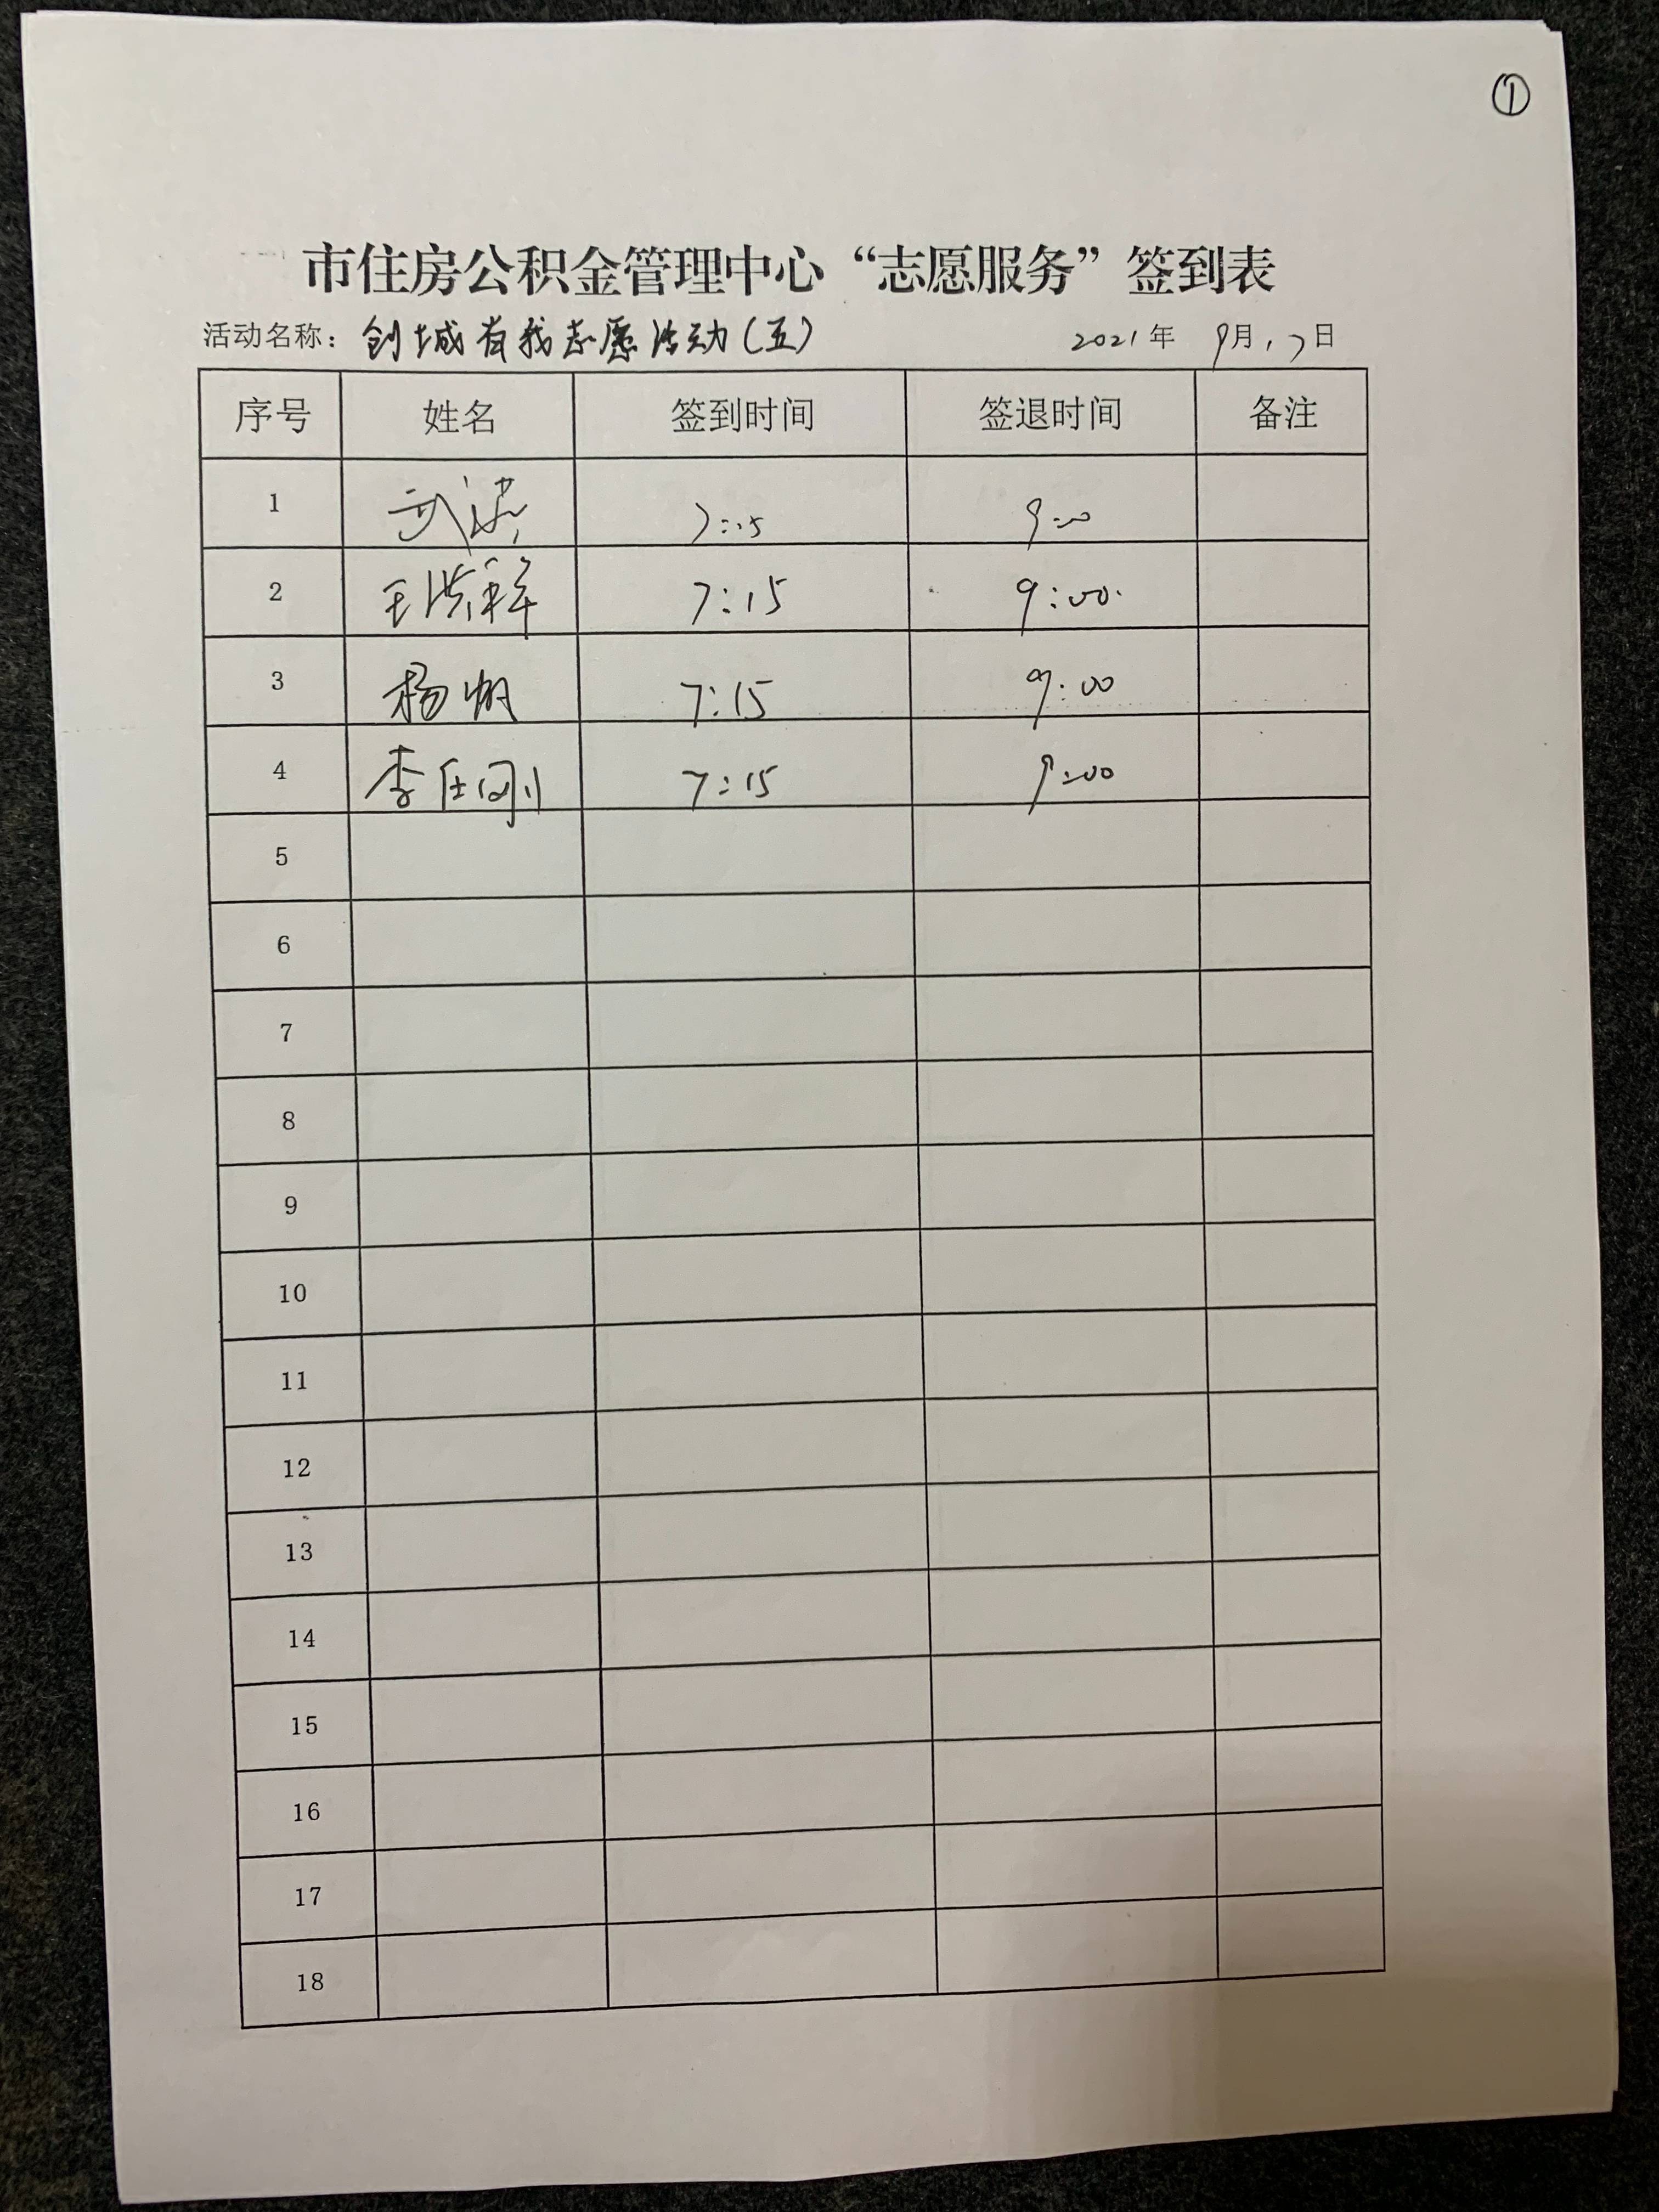 ①
市住房公积金管理中心“志愿服务”签到表
活动名称：创城有我志愿活动（五） 2021年 9月17日
序号 姓名 签到时间 签退时间 备注
1 武洪 7:15 9:00
2 王洪祥 7:15 9:00
3 杨帆 7:15 9:00
4 李任刚 7:15 9:00
5
6
7
8
9
10
11
12
13
14
15
16
17
18